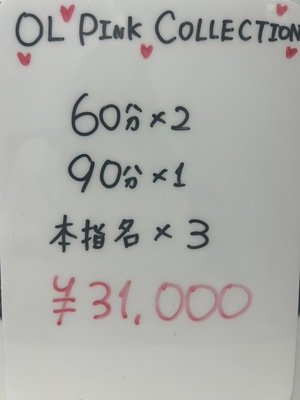 OL PINK COLLECTION
60分×2
90分×1
本指名×3
¥31,000